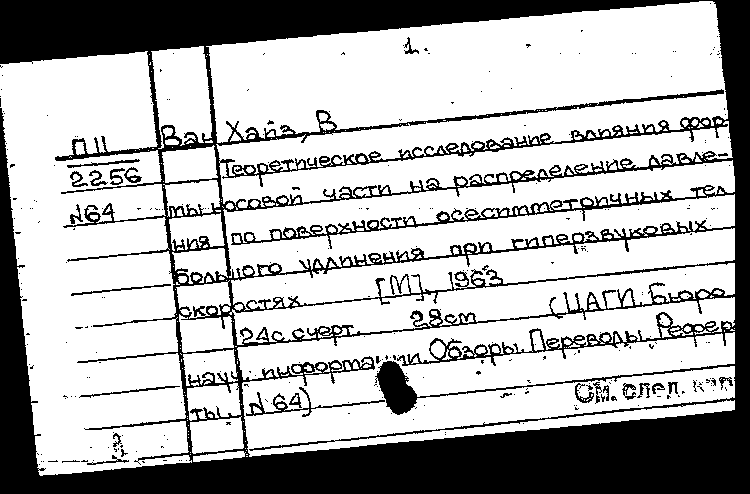 1.
П11 Ван Хайз, В
2256 Теоретическое исследование влияния фор-
N64 мы носовой части на распределение давле-
ния по поверхности осесимметричных тел
большого удлинения при гиперзвуковых
скоростях. [М], 1963
24с. с черт. 28см (ЦАГИ. Бюро
науч. информации. Обзоры. Переводы. Рефера
ты. N 64)
См. след. карт